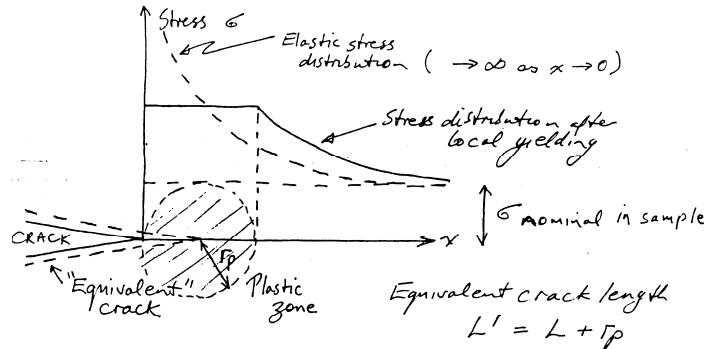 Stress σ
Elastic stress
distribution ( → ∞ as x → 0 )
Stress distribution after
local yielding
σ nominal in sample
CRACK
x
rp
"Equivalent"
crack
Plastic
zone
Equivalent crack length
L' = L + rp